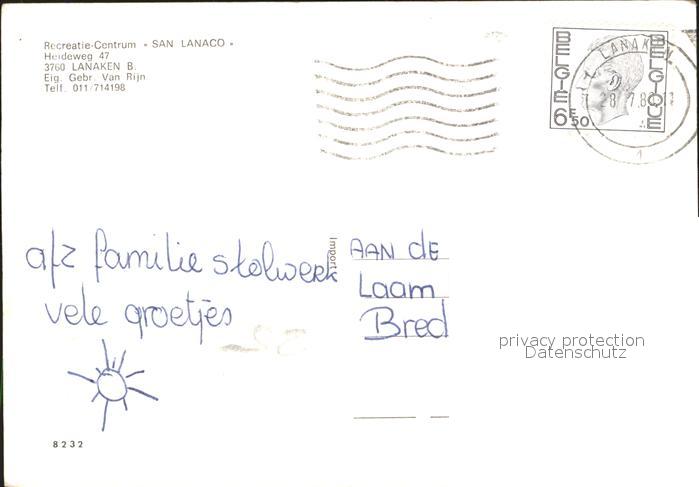 Recreatie-Centrum « SAN LANACO »
Heideweg 47
3760 LANAKEN B.
Eig. Gebr. Van Rijn
Telf. 011/714198
BELGIE
BELGIQUE
6F50
LANAKEN
1
afz familie stolwerk
vele groetjes
Import
AAN de
Laam
Bred
privacy protection
Datenschutz
8232